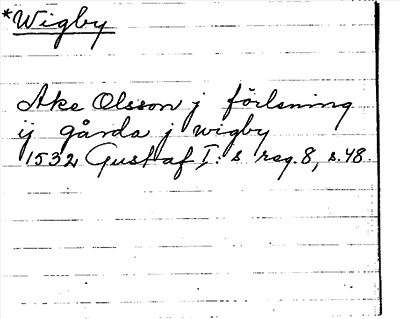 *Wigby
Ake Olsson j förlening
ij gårda j wigby
1532 Gustaf I:s reg. 8, s. 48.